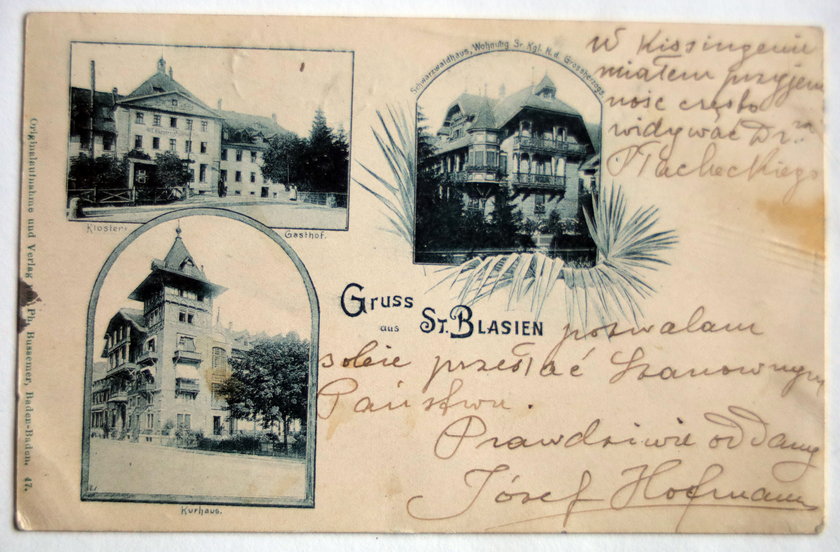 Schwarzwaldhaus, Wohnung Sr. Kgl. H. d. Grossherzogs.
W Kissingenie
miałem przyjem
ność często
widywać Dra
Tlacheckiego
Kloster
Gasthof.
Gruss
aus
St. Blasien
pozwalam
sobie przesłać Szanownym
Państwu.
Prawdziwie oddany
Józef Hofmann
Kurhaus.
Originalaufnahme und Verlag Ph. Bussemer, Baden-Baden, 47.